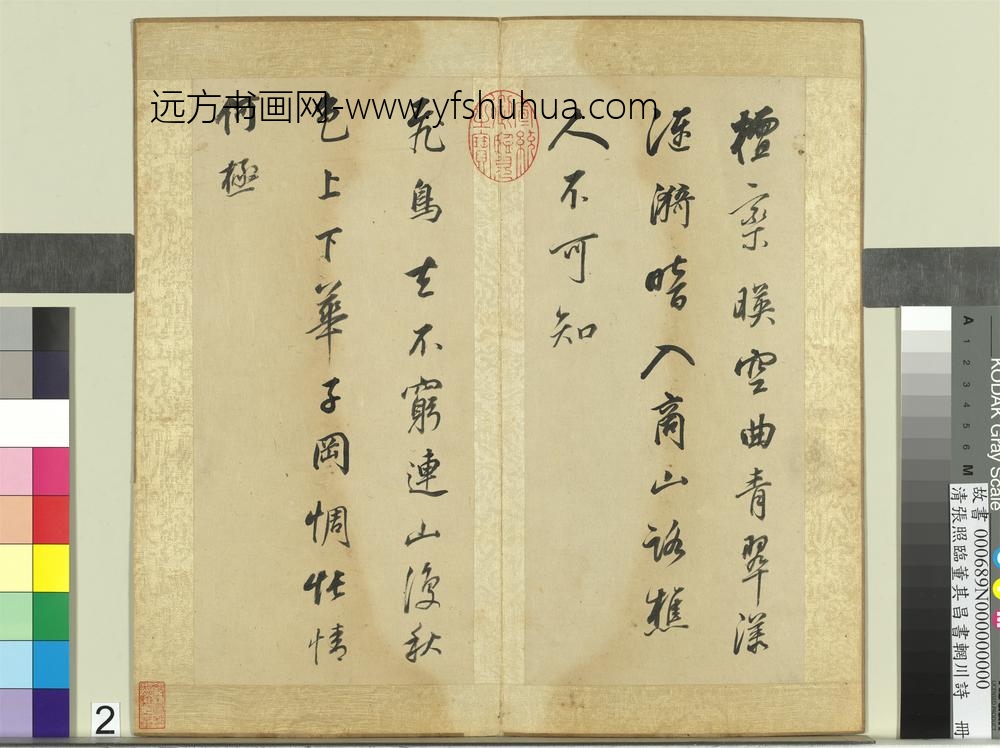 远方书画网-www.yfshuhua.com
檀欒暎空曲青翠漾
漣漪暗入商山路樵
人不可知
飛鳥去不窮連山復秋
色上下華子岡惆悵情
何極
宣統御覽之寶
2
A 1 2 3 4 5 6 M
KODAK Gray Scale
故書 000689N000000000
清張照臨董其昌書輞川詩 冊